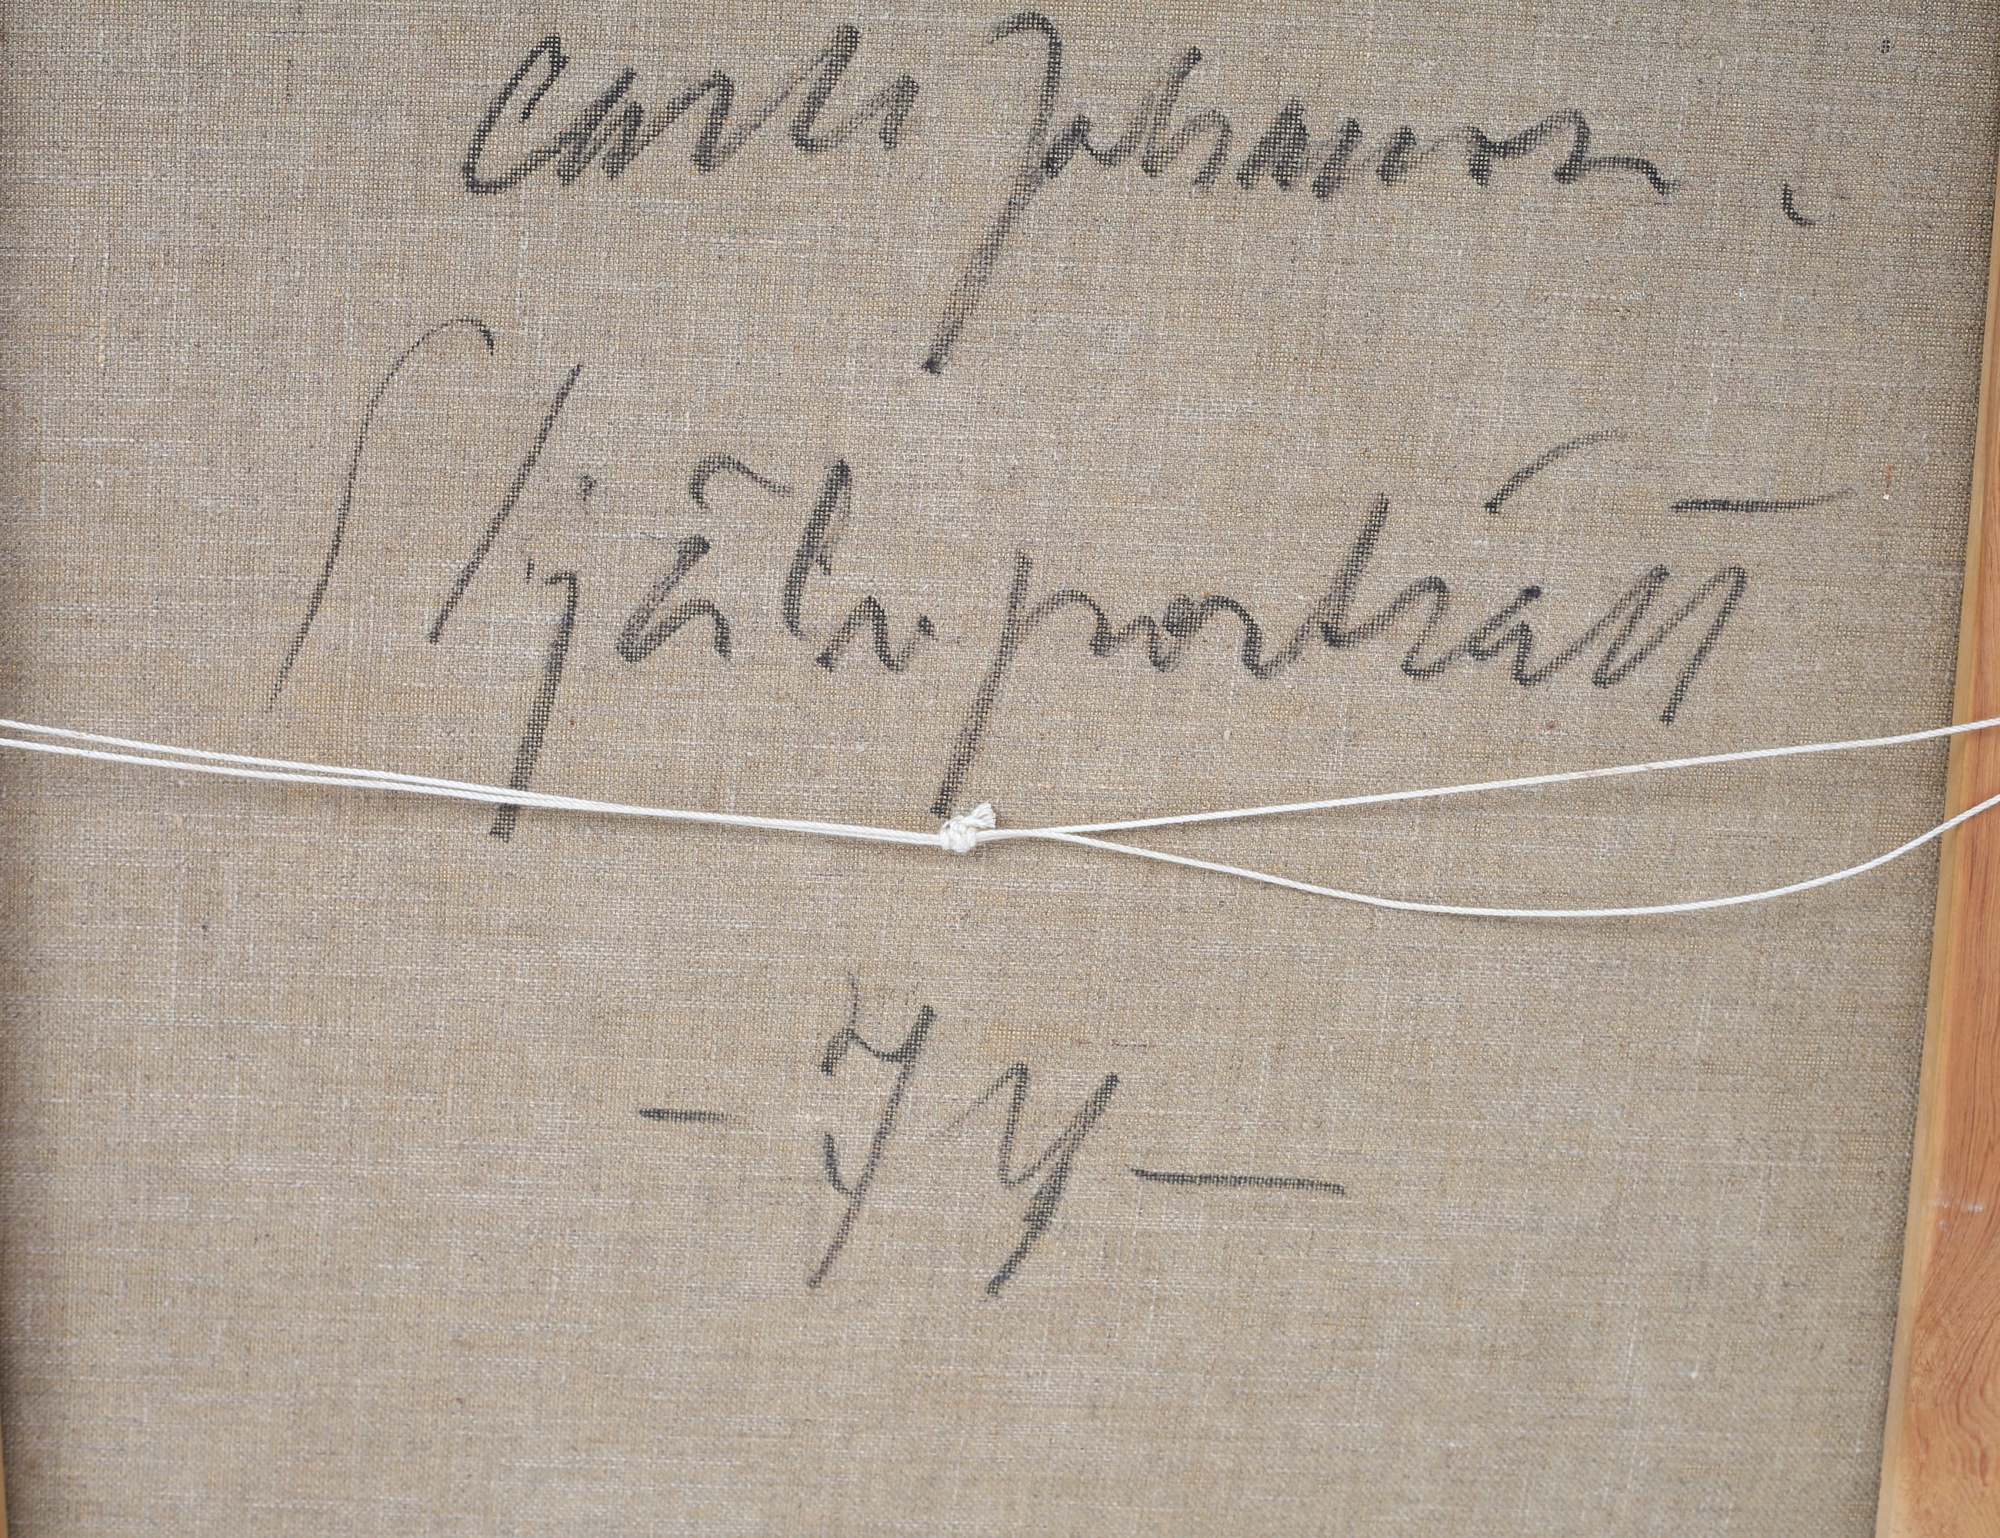 Carlo Johansson
Självporträtt
- 74 -